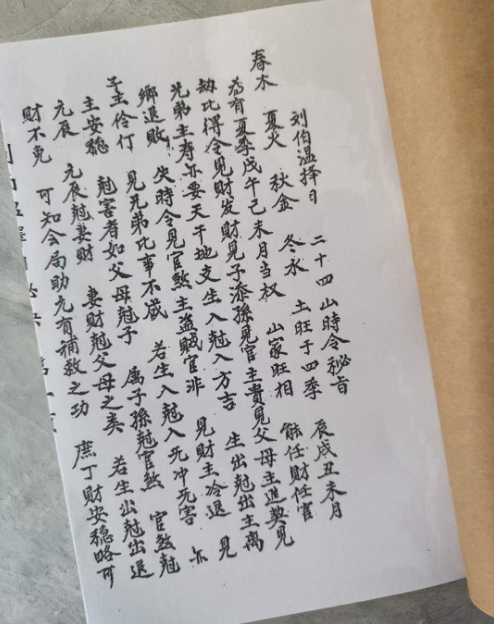 刘伯温择日 二十四山時令秘旨
春木 夏火 秋金 冬水 土旺于四季 辰戌丑未月
為有夏季戊午己未月当权 山家旺相 能任財任官
劫比得令見財发財見子添孫見官主貴見父母主進契見
兄弟主寿亦要天干地支生入尅入方吉 生出尅出主离
鄉退敗 失時令見官煞主盗賊官非 見財主冷退 見
子主伶仃 見兄弟比事不咸 若生入尅入无冲无害 亦
主安穏 尅害者如父母尅子 属子孫尅官煞 官煞尅
元辰 元辰尅妻財 妻財尅父母之类 若生出尅出退
財不免 可知会局助元有補救之功 庶丁財安穏略可